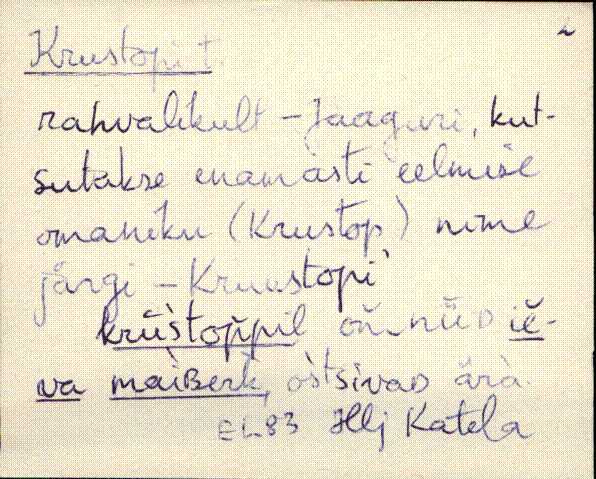 2
Krustopi t.
rahvalikult - Jaaguri, kut-
sutakse enamasti eelmise
omaniku (Krustop) nime
järgi - Kruustopi
krùstoppil on nüD iĕ-
va màiʙerk, ostsivaD ärà.
EL83 Hlj Katela